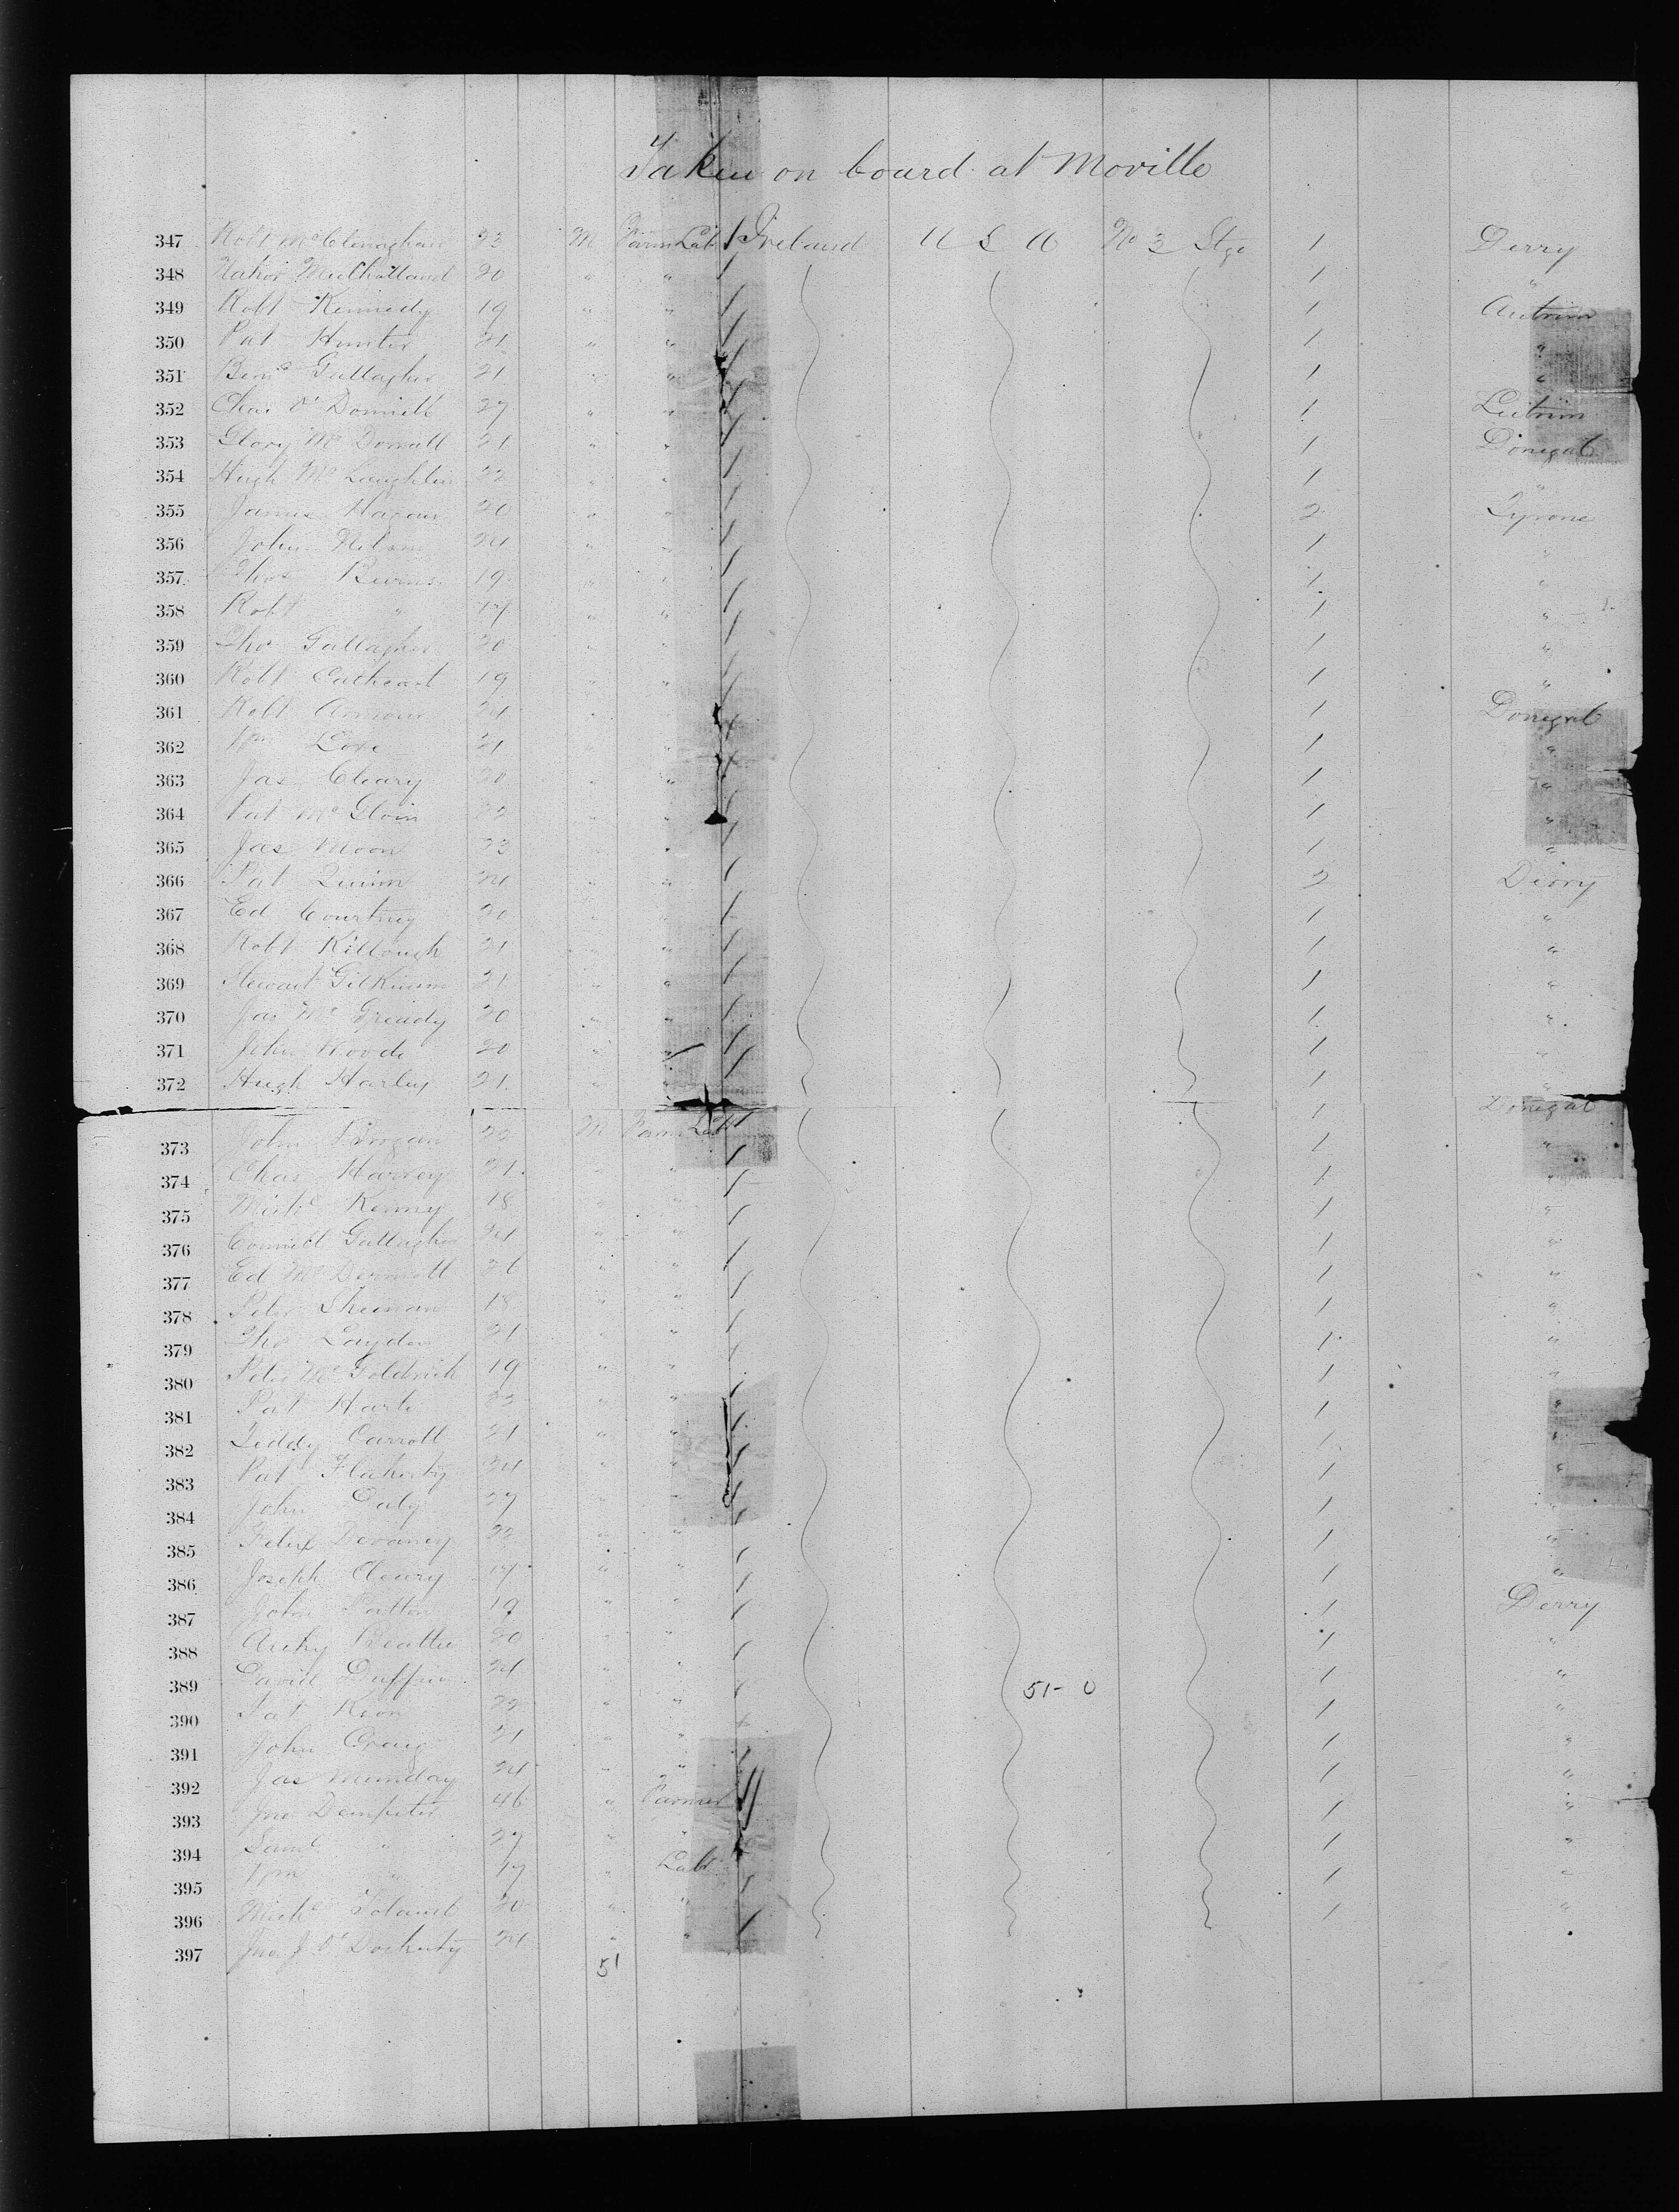 Taken on board at Moville
347 Robt McClenaghan 23 M Farm Lab 1 Ireland U S A No 3 Stge 1 Derry
348 Mulholland 20 " " 1 "
349 Robt Kennedy 19 " " 1 Antrim
350 Pat Hunter 21 " " 1 "
351 Gallagher 21 " " 1 "
352 Chas O'Donnell 27 " " 1 Leitrim
353 McDonnell 21 " " 1 Donegal
354 Hugh McLaughlin 22 " " 1 "
355 James Hagan 20 " " 2 Tyrone
356 John 24 " " 1 "
357 Thos Burns 19 " " 1 "
358 Robt " 17 " " 1 "
359 Tho Gallagher 20 " " 1 "
360 Robt Cathcart 19 " " 1 "
361 Robt Armour 24 " " 1 Donegal
362 Wm Love 21 " " 1 "
363 Jas Cleary 20 " " 1 "
364 Pat McGloin 22 " " 1 "
365 Jas Moon 23 " " 1 "
366 Pat Quinn 24 " " 2 Derry
367 Ed Courtney 20 " " 1 "
368 Robt Killough 21 " " 1 "
369 Stewart Gilkinson 21 " " 1 "
370 Jas 20 " " 1 "
371 John Woods 20 " " 1 "
372 Hugh Harley 21 " " 1 "
373 John Brogan 22 M Farm Lab 1 Donegal
374 Chas Harvey 21 " " 1 "
375 Michl Kenny 18 " " 1 "
376 Connell Gallagher 24 " " 1 "
377 Ed McDermott 26 " " 1 "
378 Peter Sheenan 18 " " 1 "
379 Tho Layden 21 " " 1 "
380 Peter McGoldrick 19 " " 1 "
381 Pat Harte 23 " " 1 "
382 Teddy Carroll 21 " " 1 "
383 Pat Flaherty 24 " " 1 "
384 John Daly 27 " " 1 "
385 Felix Devaney 22 " " 1 "
386 Joseph Cleary 17 " " 1 "
387 John Patton 19 " " 1 Derry
388 Archy Beattie 20 " " 1 "
389 David Duffin 24 " " 51-0 1 "
390 Pat Keon 22 " " 1 "
391 John Craig 21 " " 1 "
392 Jas Munday 24 " " 1 "
393 Jno Dempster 46 " Farmer 1 "
394 Saml " 27 " " 1 "
395 Wm " 17 " Labr 1 "
396 Michl Toland 20 " " 1 "
397 Jno J O'Docherty 24 " "
51